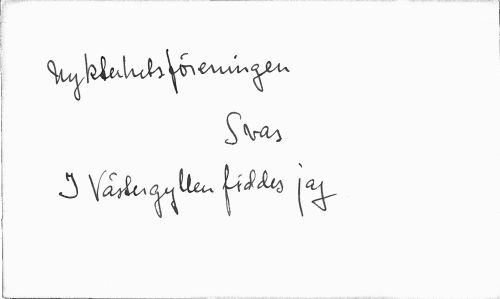 Nykterhetsföreningen
Svas
I Västergyllen föddes jag